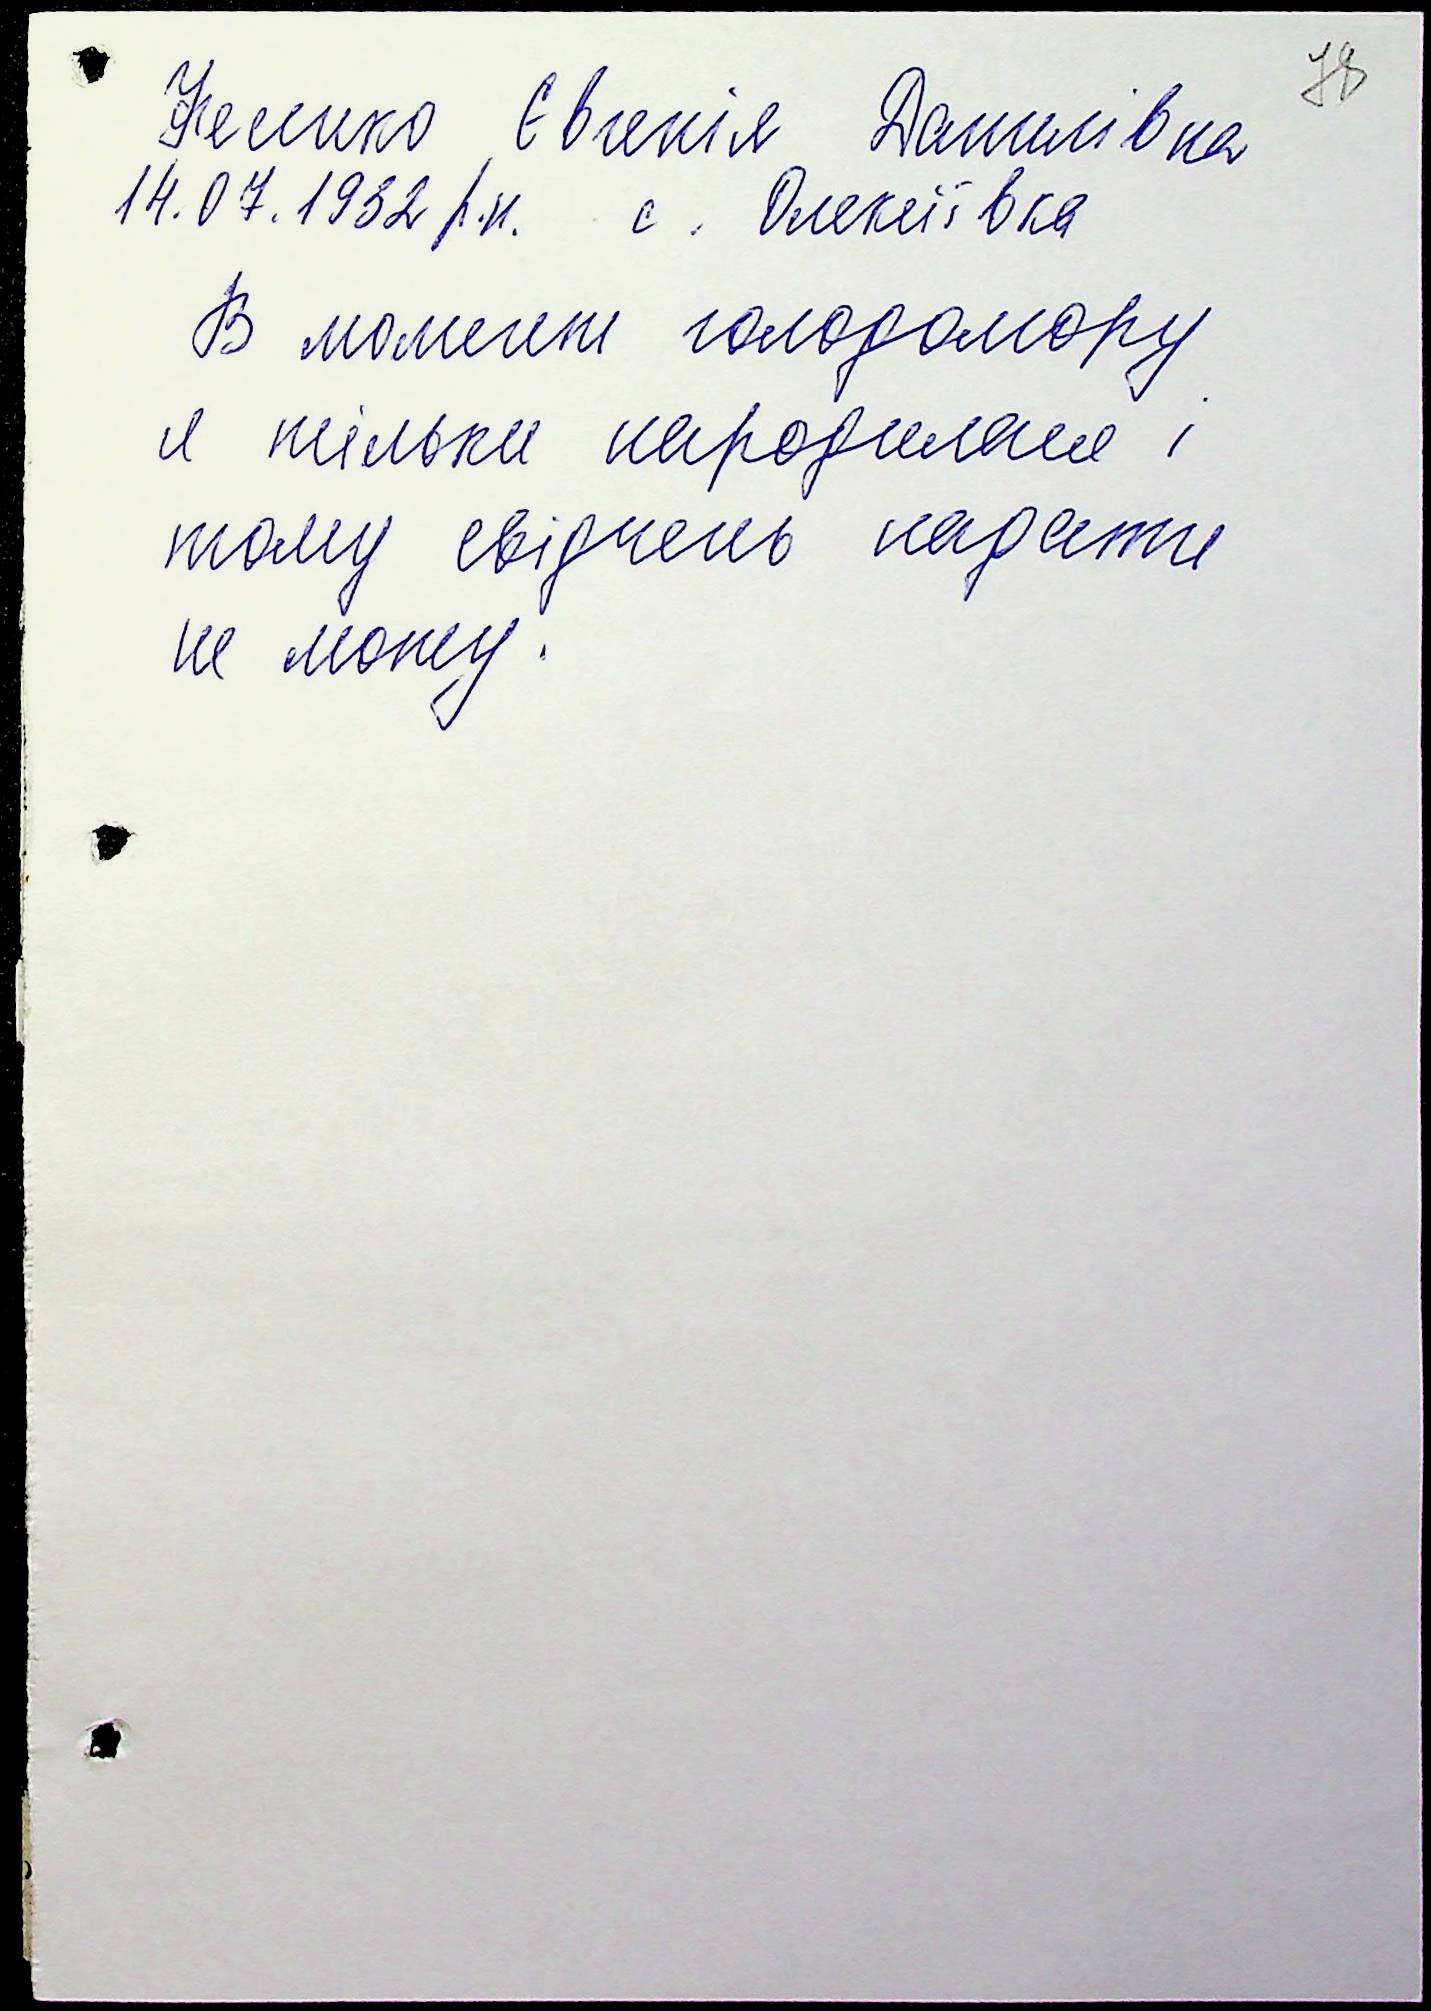 78
Євгенія Данилівна
14.07.1932 р.н. с. Олексіївка
В момент голодомору
я тільки народилася і
тому свідчень надати
не можу.